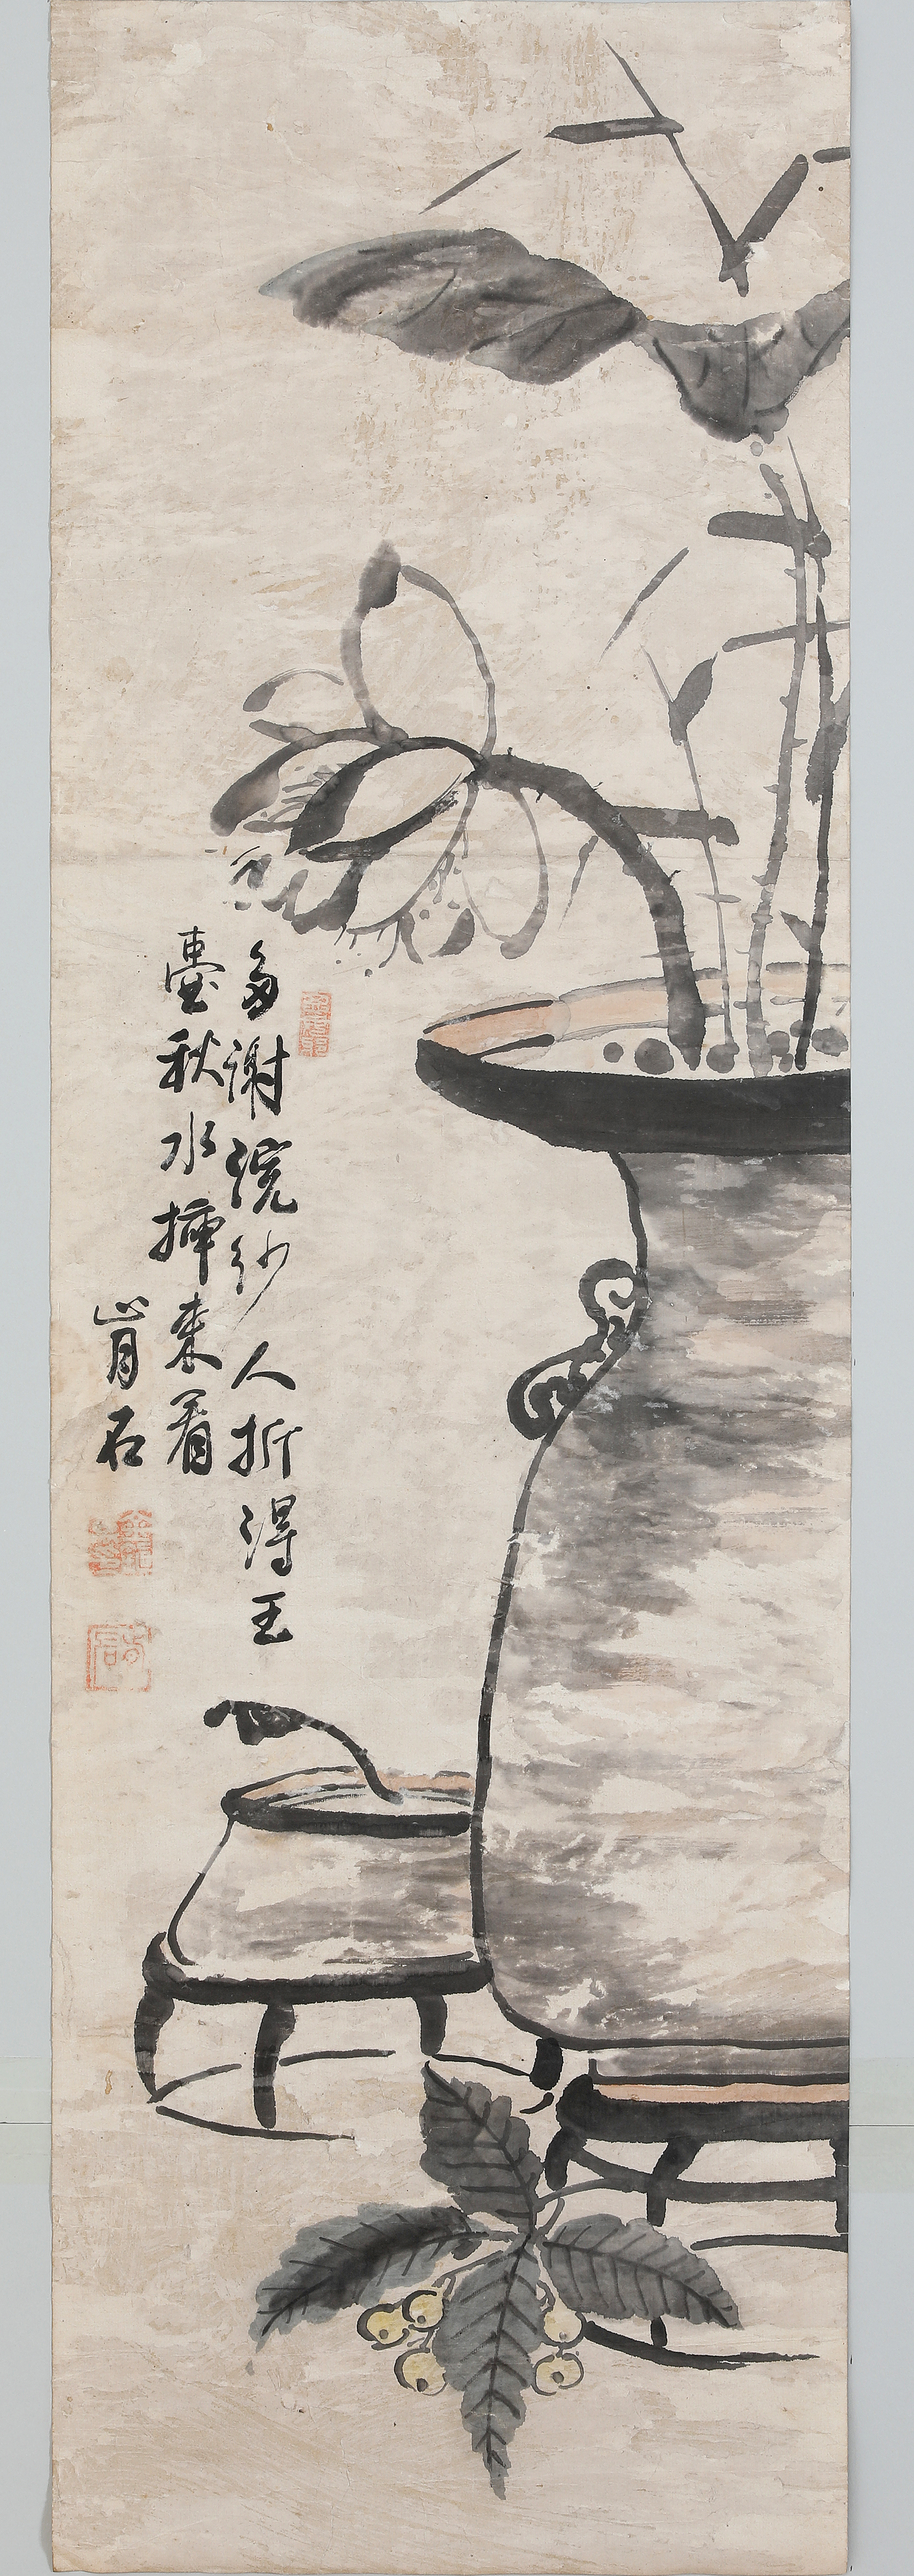 多謝浣紗人折得玉
壺秋水揷來看
肯石